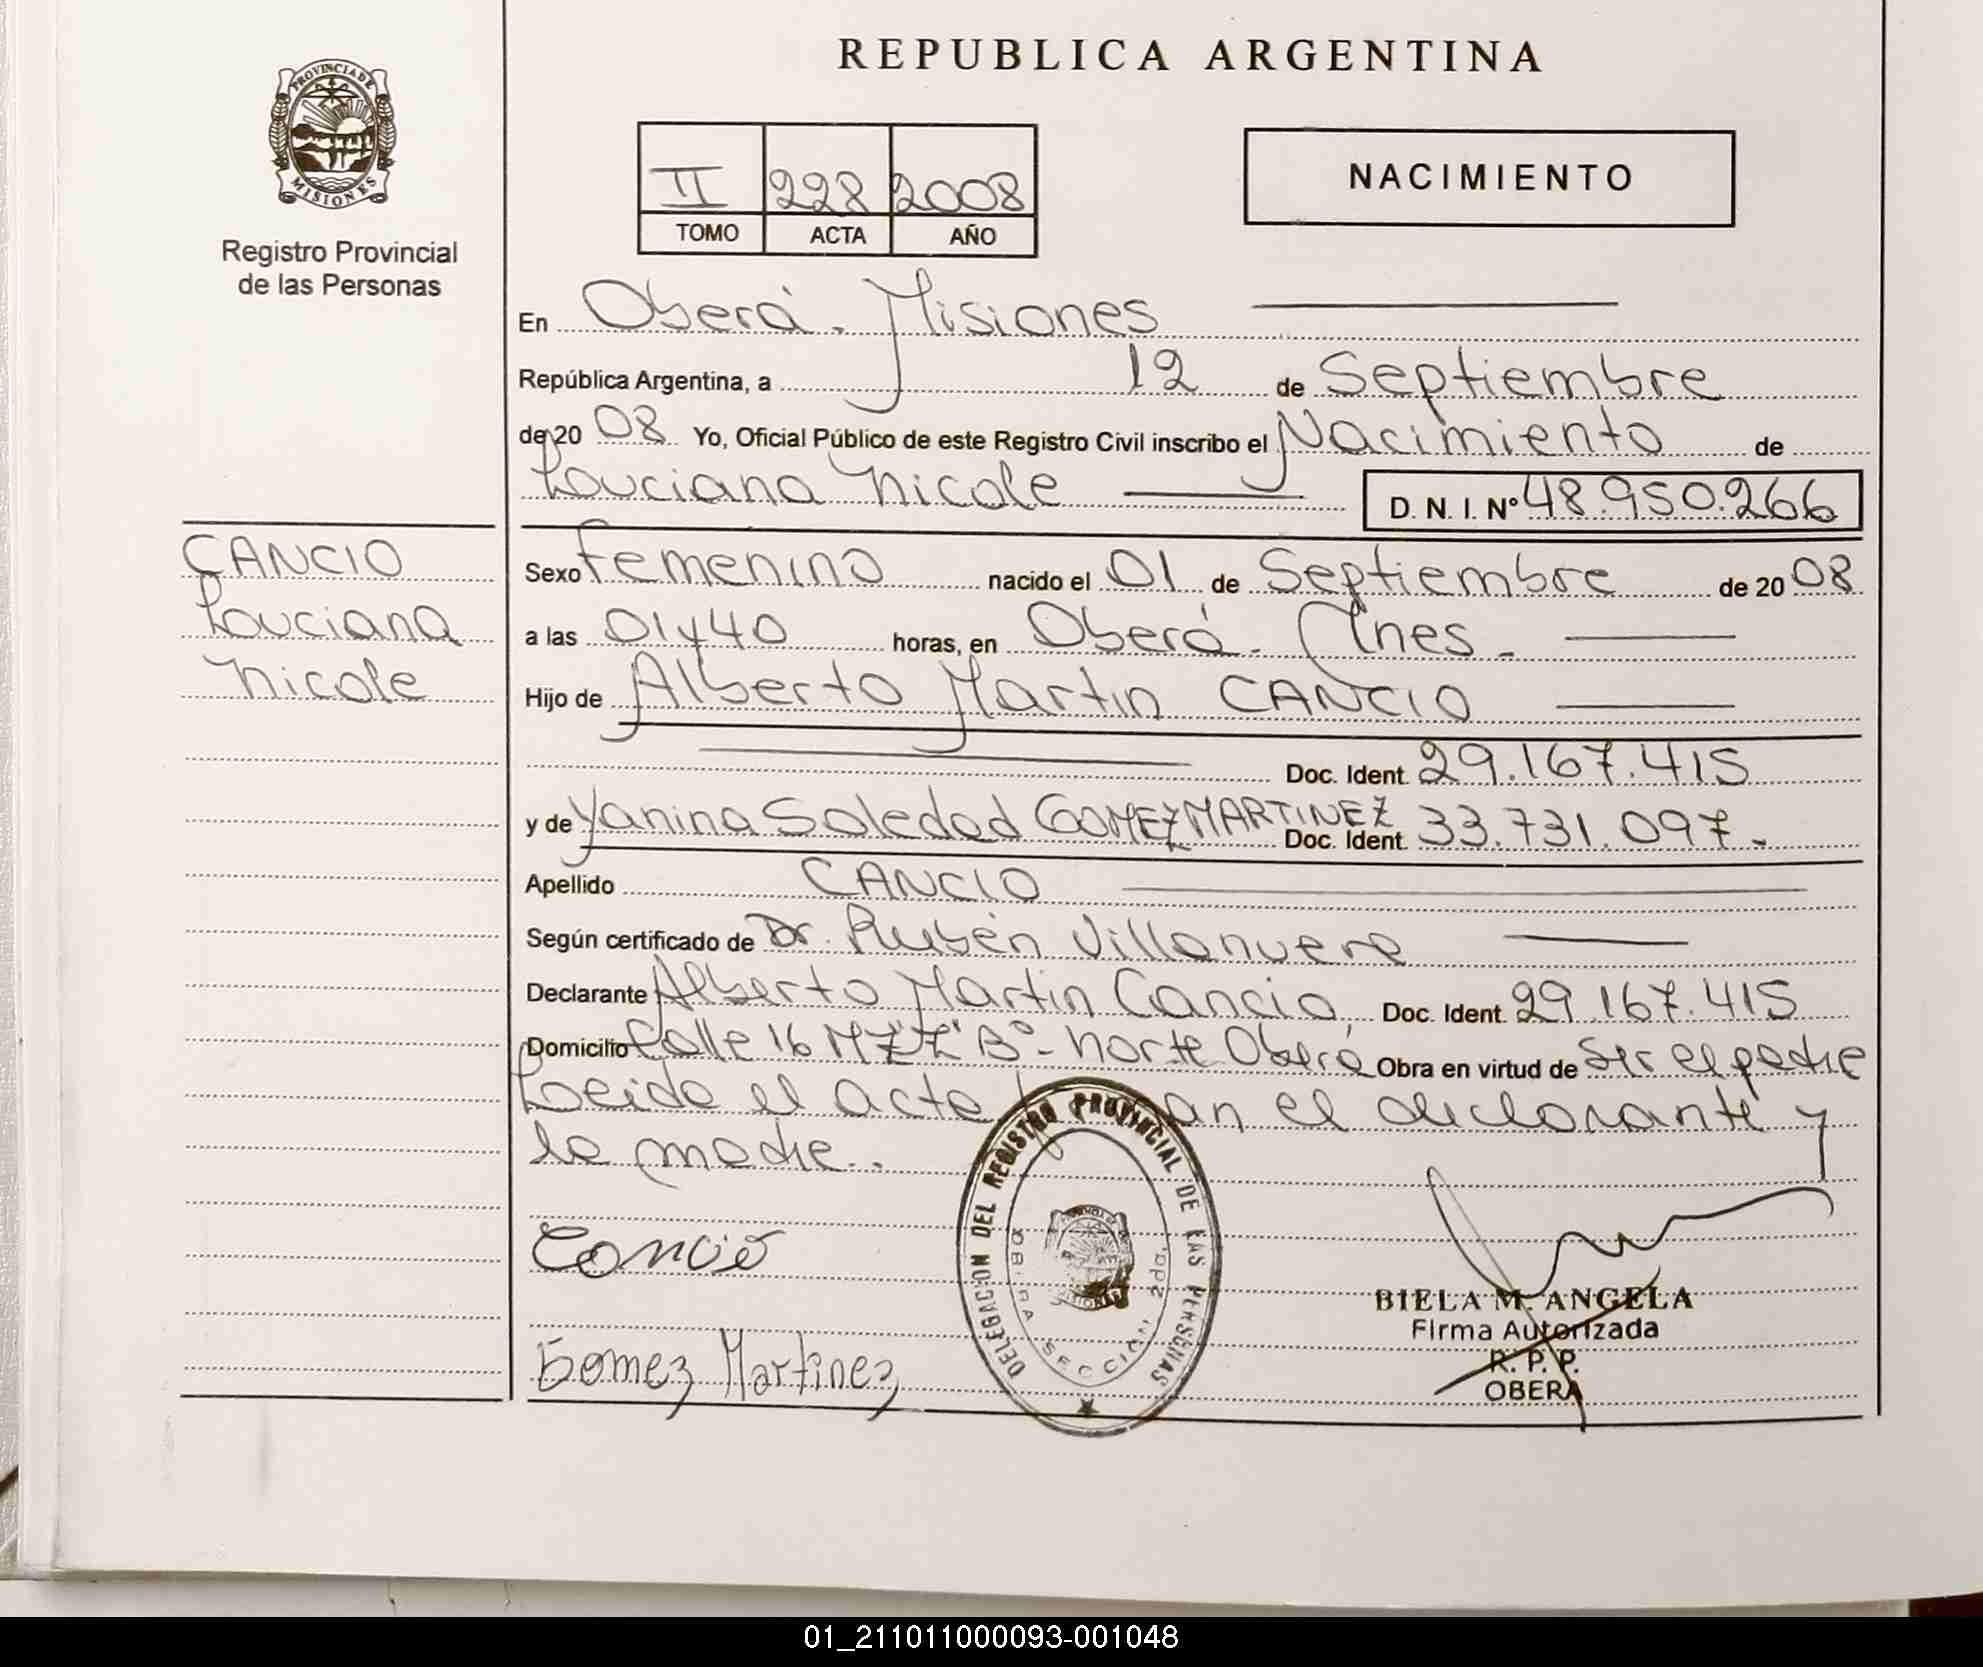 REPUBLICA ARGENTINA
PROVINCIA DE MISIONES
Registro Provincial
de las Personas
II 228 2008
TOMO ACTA AÑO
NACIMIENTO
En Oberá. Misiones
República Argentina, a 12 de Septiembre
de 20 08 Yo, Oficial Público de este Registro Civil inscribo el Nacimiento de
Louciana Nicole D. N. I. Nº 48.950.266
CANCIO
Louciana
Nicole
Sexo Femenino nacido el 01 de Septiembre de 20 08
a las 01y40 horas, en Oberá. Mnes.
Hijo de Alberto Martin CANCIO
Doc. Ident. 29.167.415
y de Yanina Soledad GOMEZ MARTINEZ Doc. Ident. 33.731.097.
Apellido CANCIO
Según certificado de Dr. Rubén Villanueva
Declarante Alberto Martin Cancio, Doc. Ident. 29.167.415
Domicilio Calle 16 Mz "Z" Bº- Norte Oberá Obra en virtud de ser el padre
Leida el acta an el declarante y
la madre.
Cancio
Gomez Martinez
DELEGACION DEL REGISTRO PROVINCIAL DE LAS PERSONAS
OBERA SECCION 2da.
BIELA M. ANGELA
Firma Autorizada
R. P. P.
OBERA
01_211011000093-001048